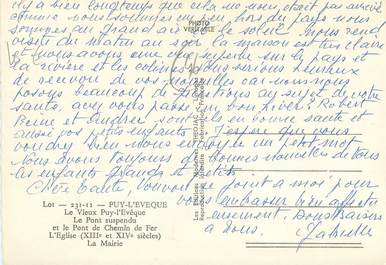 il y a bien longtemps que cela ne nous était pas arrivé
comme nous sommes un en hors du pays nous
sommes au grand air et le soleil nous rend
visite du matin au soir la maison est très claire
nous avons une vue superbe sur le pays et
la rivière et les collines nous serions heureux
de recevoir de vos nouvelles car nous nous
posons beaucoup de questions au sujet de votre
santé, avez vous passé un bon hiver? Robert
Reine et Andrée sont ils en bonne santé et
aussi vos petits enfants j'espère que vous
voudrez bien nous envoyer un petit mot
Nous avons toujours de bonnes nouvelles de tous
les enfants grands et petits
Chère tante, joint à moi pour
vous embrasser bien affectu
eusement. Bons Baisers
à tous. Gabrielle
PHOTO
VÉRITABLE
Lot - 231-11 - PUY-L'EVEQUE
Le Vieux Puy-l'Evêque
Le Pont suspendu
et le Pont de Chemin de Fer
L'Eglise (XIIIe et XIVe siècles)
La Mairie